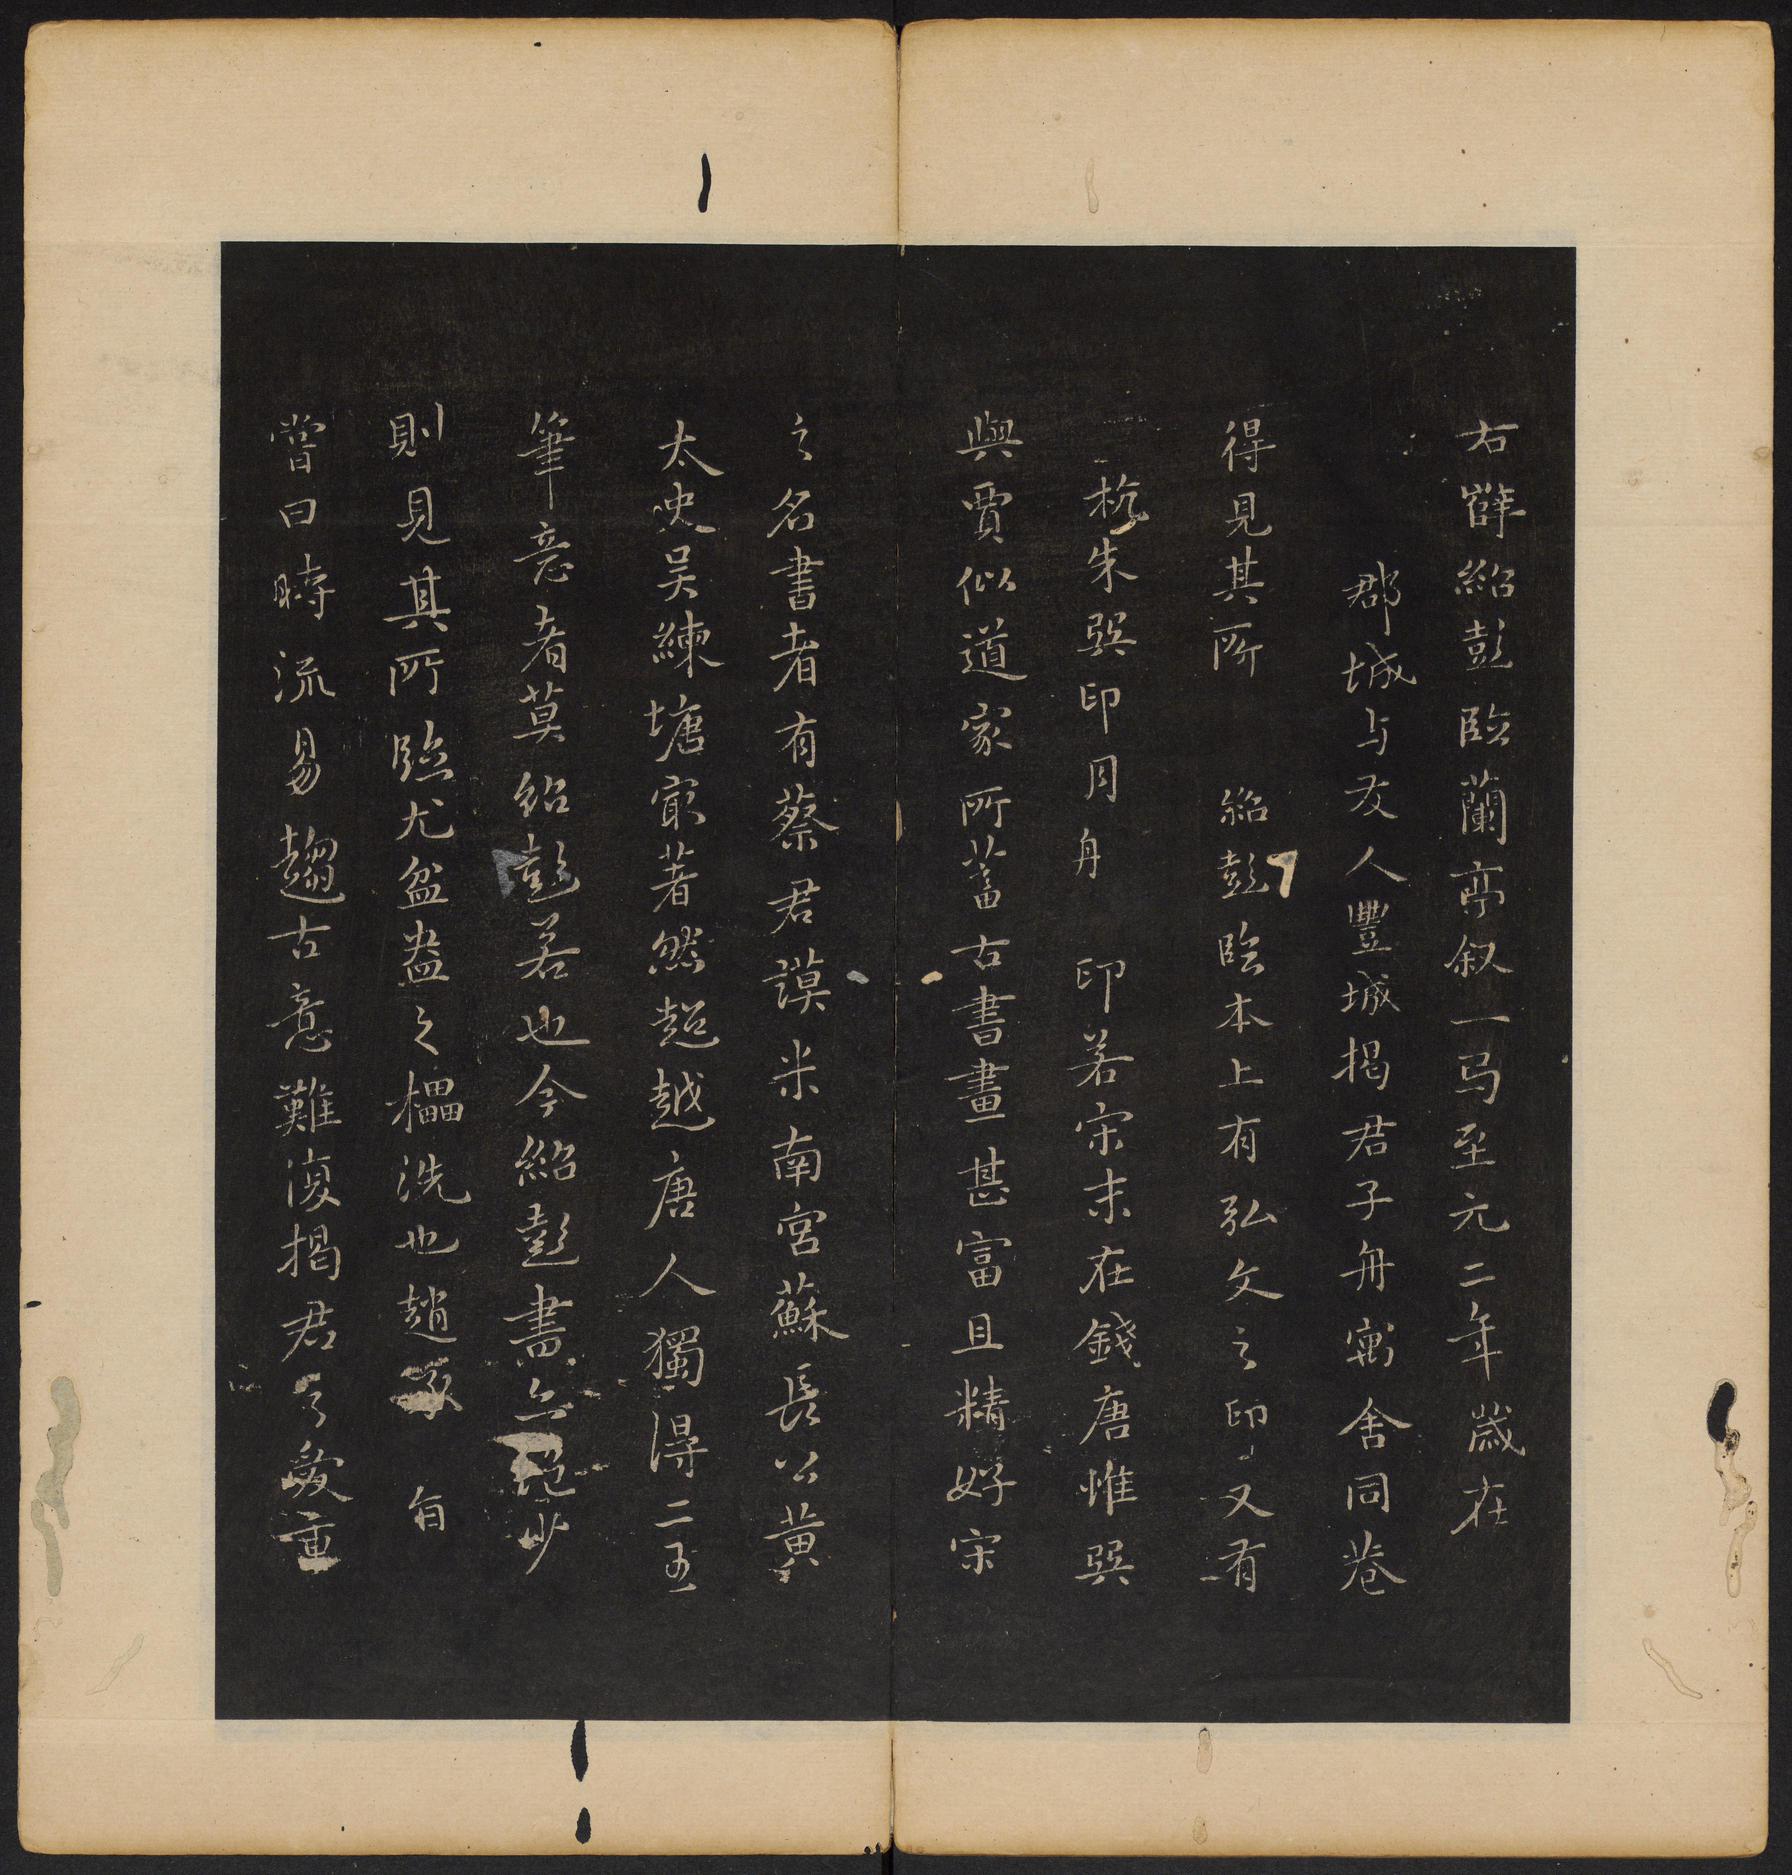 右薛紹彭臨蘭亭叙一弓至元二年歲在
郡城与友人豐城揭君子舟寓舍同巷
得見其所 紹彭臨本上有弘文之印又有
杭朱巽印月舟 印若宋末在錢唐惟巽
與賈似道家所蓄古書畫甚富且精好宋
之名書者有蔡君謨米南宮蘇長公黃
太史吴練塘㝡著然超越唐人獨得二王
筆意者莫紹彭若也今紹彭書 妙
則見其所臨尤盆盎之櫑洗也趙 自
嘗曰時流易趨古意難復揭君 愛重